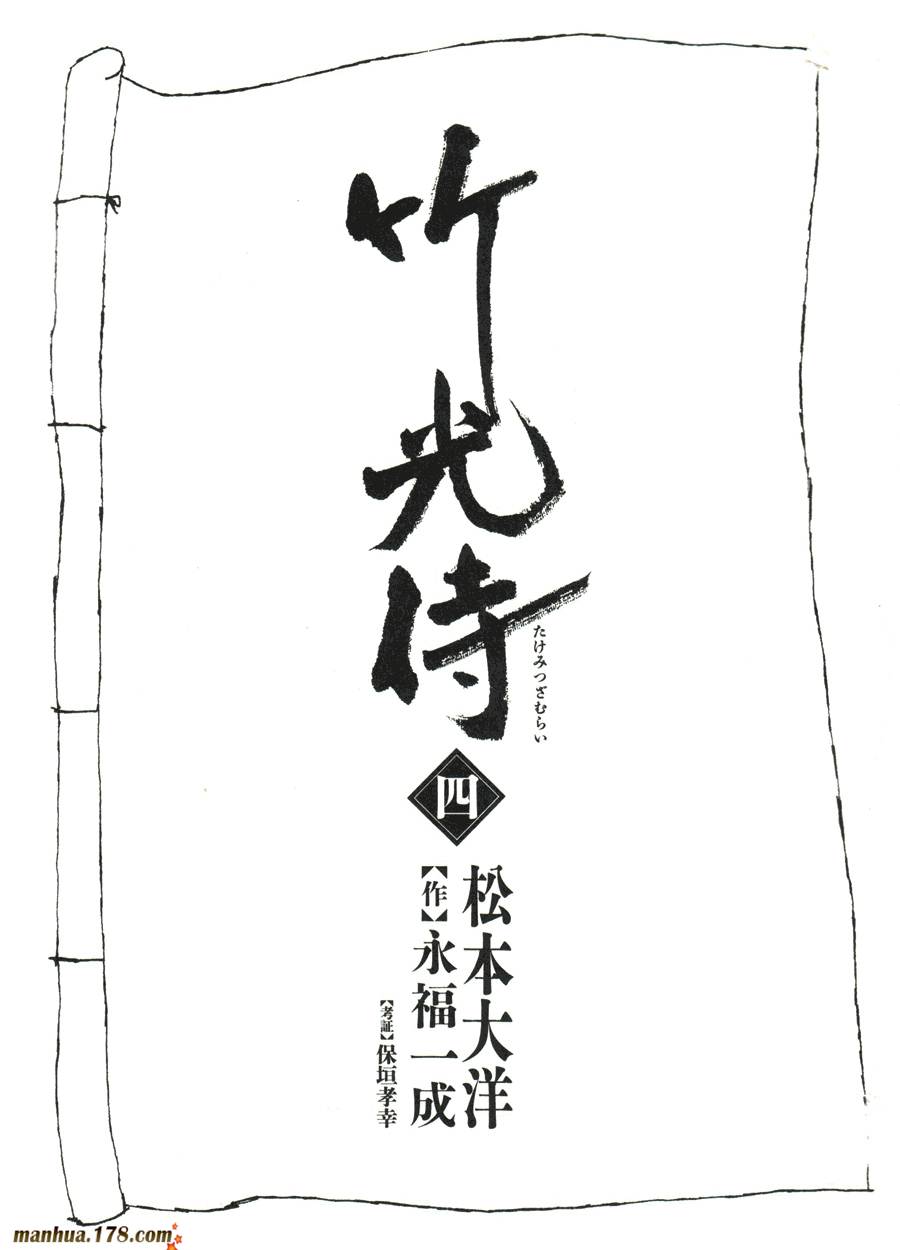 竹光侍
たけみつざむらい
四
松本大洋
【作】永福一成
【考証】保垣孝幸
manhua.178.com